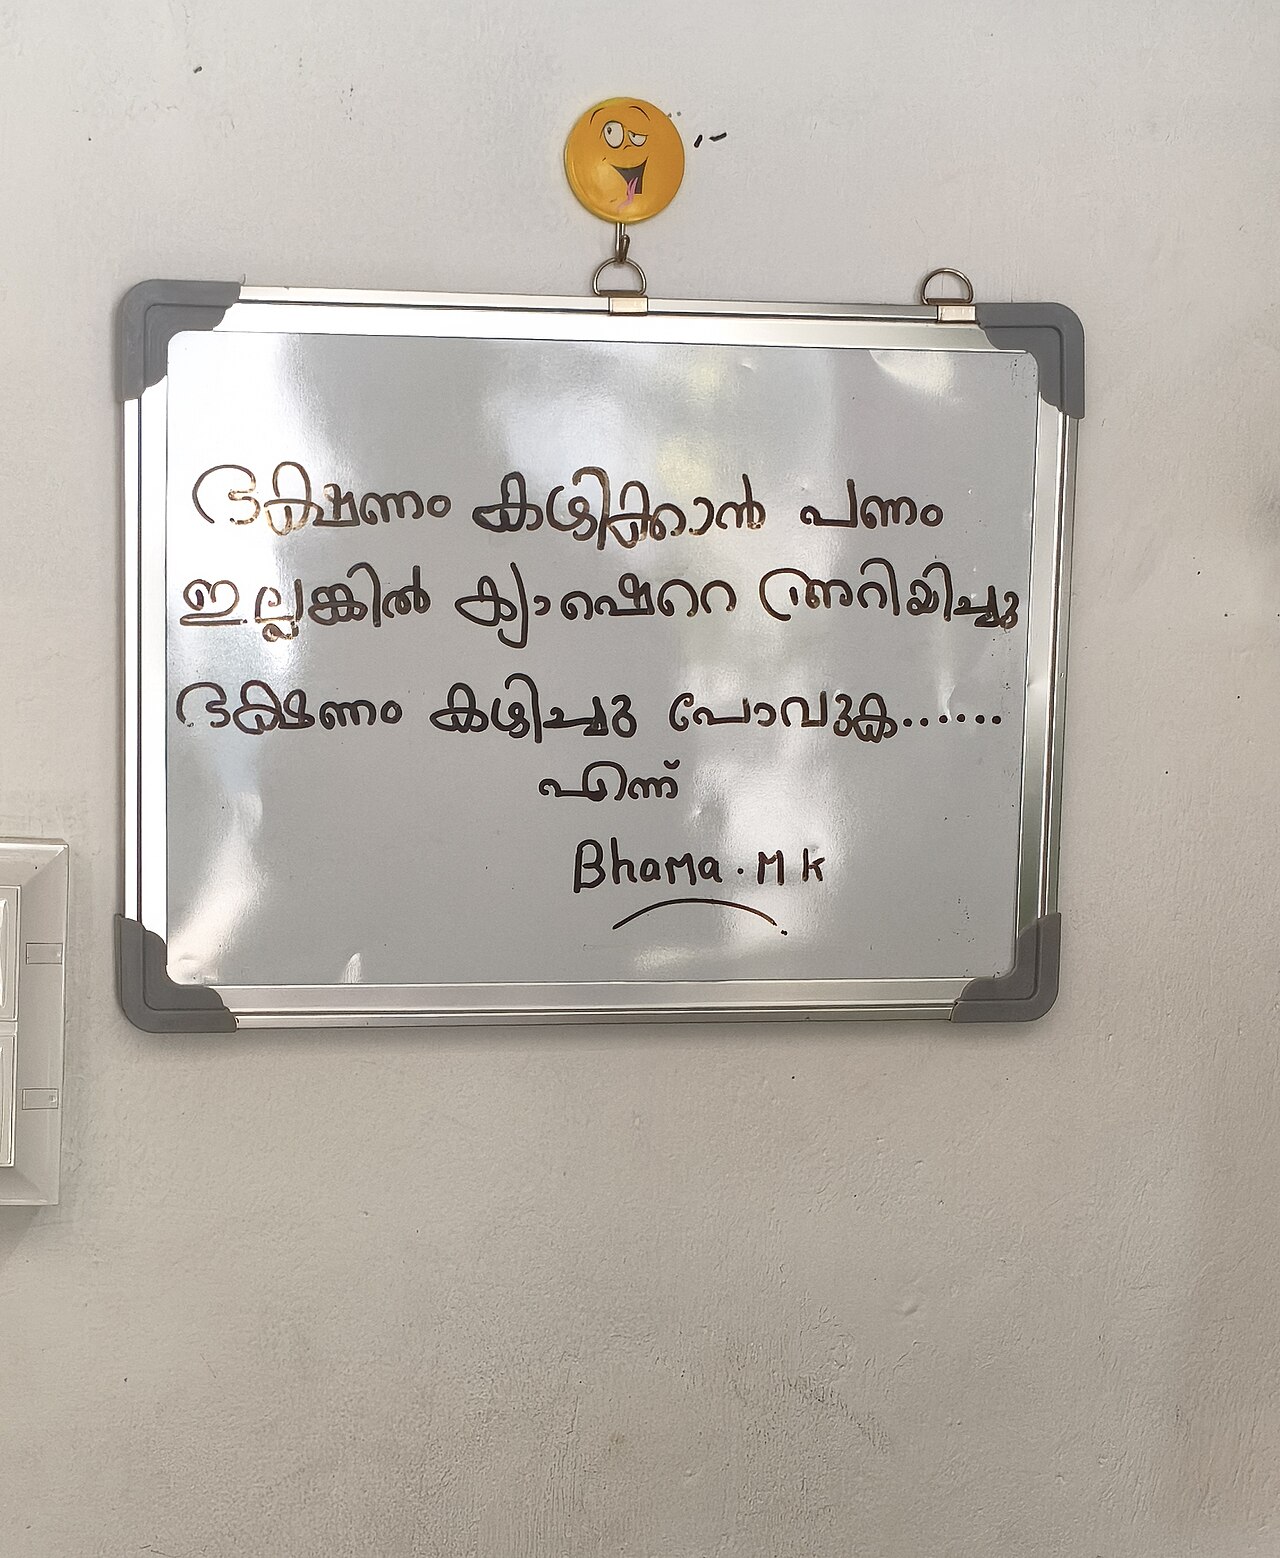 ഭക്ഷണം കഴിക്കാൻ പണം
ഇല്ലങ്കിൽ ക്യാഷെറെ അറിയിച്ചു
ഭക്ഷണം കഴിച്ചു പോവുക......
എന്ന്
Bhama. M k